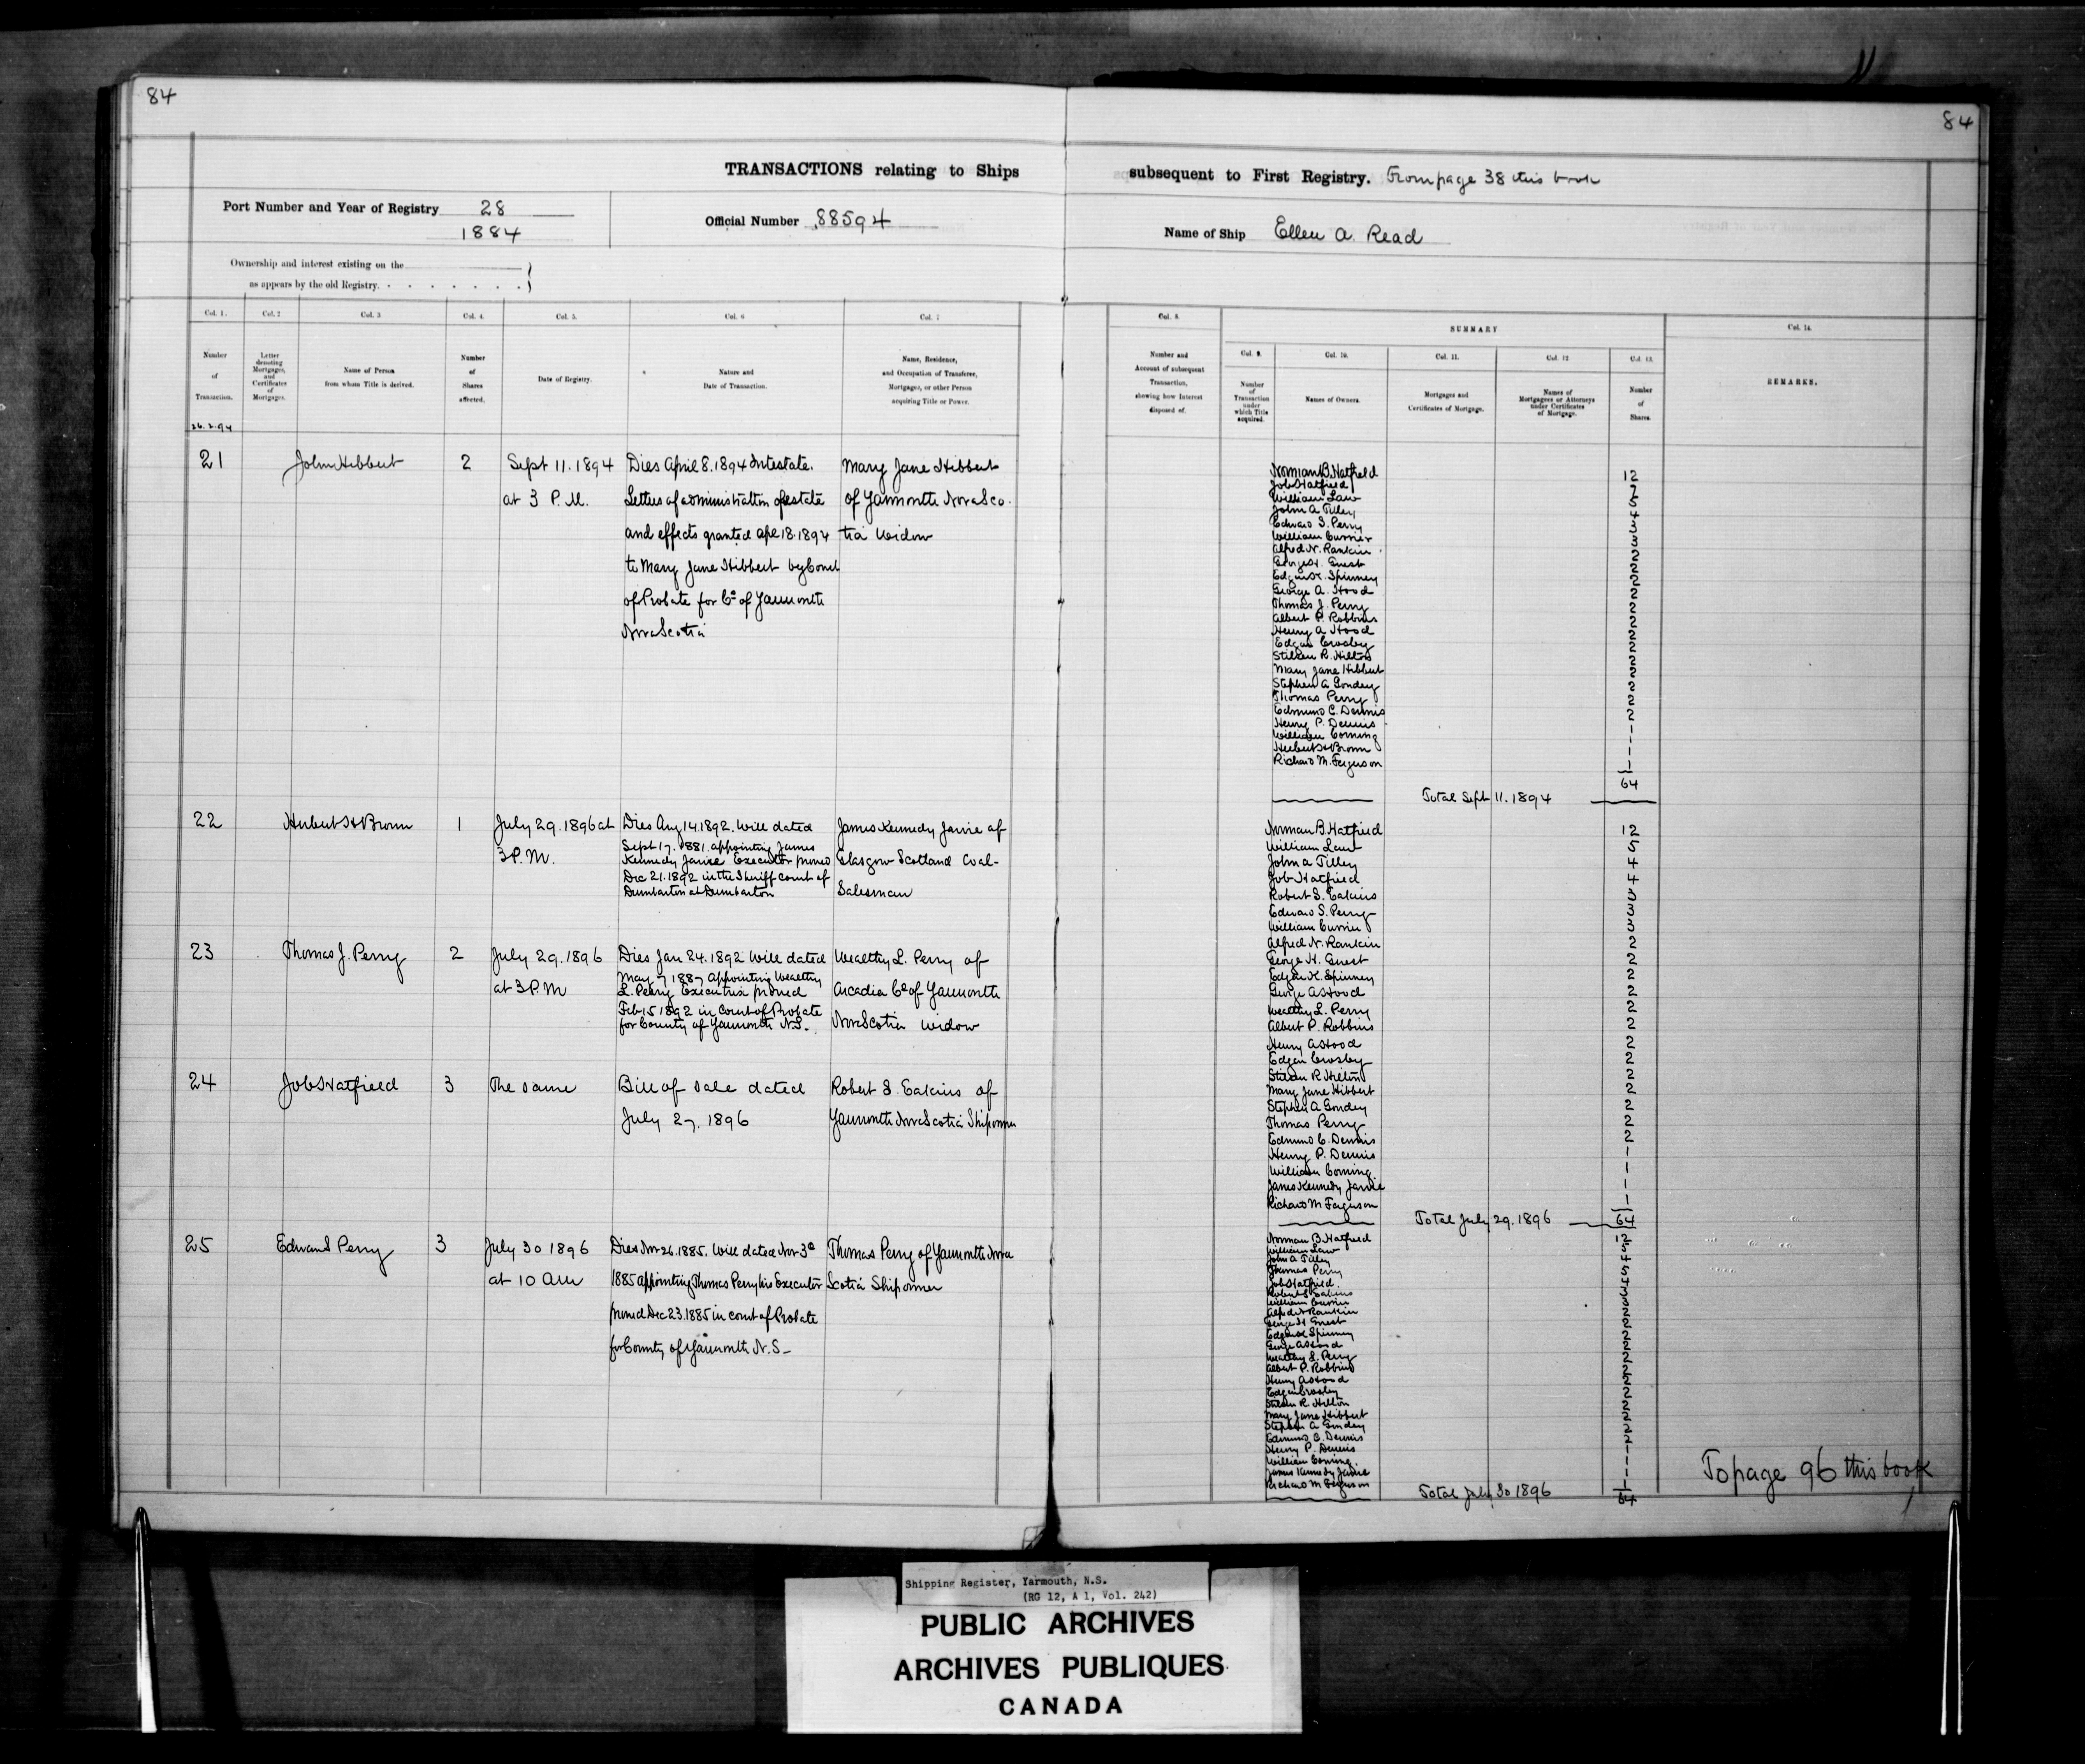 84
84
TRANSACTIONS relating to Ships
subsequent to First Registry. From page 38 this book
Port Number and Year of Registry 28
1884
Official Number 88594
Name of Ship Ellen A. Read
Ownership and interest existing on the
as appears by the old Registry.
Col. 1.
Col. 2
Col. 3
Col. 4.
Col. 5.
Col. 6
Col. 7
Col. 8.
SUMMARY
Col. 14.
Number of Transaction.
Letter denoting Mortgages, and Certificates of Mortgages.
Name of Person from whom Title is derived.
Number of Shares affected.
Date of Registry.
Nature and Date of Transaction.
Name, Residence, and Occupation of Transferee, Mortgagee, or other Person acquiring Title or Power.
Number and Account of subsequent Transaction, showing how Interest disposed of.
Col. 9.
Col. 10.
Col. 11.
Col. 12
Col. 13.
Number of Transaction under which Title acquired.
Names of Owners.
Mortgages and Certificates of Mortgage.
Names of Mortgagees or Attorneys under Certificates of Mortgage.
Number of Shares.
REMARKS.
26.2.94
21 John Hibbert 2 Sept 11. 1894 Dies April 8. 1894 Intestate. Mary Jane Hibbert
at 3 P.M. Letters of administration of estate of Yarmouth Nova Sco-
and effects granted Apl 18. 1894 tia Widow
to Mary Jane Hibbert by Court
of Probate for Co of Yarmouth
Nova Scotia
Norman B. Hatfield 12
Job Hatfield 7
William Law 5
John A Tilley 4
Edward S. Perry 3
William Currier 3
Alfred N. Rankin 2
George H. Guest 2
Edgar K. Spinney 2
George A. Hood 2
Thomas J. Perry 2
Albert P. Robbins 2
Henry A Hood 2
Edgar Crosby 2
Stilson R. Hilton 2
Mary Jane Hibbert 2
Stephen A Goudey 2
Thomas Perry 2
Edmund C. Dennis 2
Henry P. Dennis 1
William Corning 1
Herbert H Brown 1
Richard M. Ferguson 1
64
Total Sept 11. 1894
22 Herbert H Brown 1 July 29. 1896 at Dies Aug 14. 1892. Will dated James Kennedy Jarvie of
3 P.M. Sept 17. 1881. appointing James
Kennedy Jarvie Executor proved Glasgow Scotland Coal-
Dec 21. 1892 in the Sheriff court of
Dumbarton at Dumbarton Salesman
23 Thomas J. Perry 2 July 29. 1896 Dies Jan 24. 1892 Will dated Wealthy L. Perry of
at 3 P.M May 7 1887 Appointing Wealthy
L. Perry Executrix proved Arcadia Co of Yarmouth
Feb 15 1892 in Court of Probate
for County of Yarmouth N.S. Nova Scotia Widow
24 Job Hatfield 3 The same Bill of Sale dated Robert S. Eakins of
July 27. 1896 Yarmouth Nova Scotia Shipowner
Norman B. Hatfield 12
William Law 5
John A Tilley 4
Job Hatfield 4
Robert S. Eakins 3
Edward S. Perry 3
William Currier 3
Alfred N. Rankin 2
George H. Guest 2
Edgar K. Spinney 2
George A Hood 2
Wealthy L. Perry 2
Albert P. Robbins 2
Henry A Hood 2
Edgar Crosby 2
Stilson R Hilton 2
Mary Jane Hibbert 2
Stephen A Goudey 2
Thomas Perry 2
Edmund C. Dennis 2
Henry P. Dennis 1
William Corning 1
James Kennedy Jarvie 1
Richard M Ferguson 1
Total July 29. 1896 64
25 Edward Perry 3 July 30 1896 Dies Nov 26. 1885. Will dated Nov 3d Thomas Perry of Yarmouth Nova
at 10 AM 1885 appointing Thomas Perry his Executor Scotia Shipowner
proved Dec 23. 1885 in court of Probate
for County of Yarmouth N.S.
Norman B. Hatfield 12
William Law 5
John A Tilley 4
Thomas Perry 5
Job Hatfield. 4
Robert S Eakins 3
William Currier 3
Alfred N Rankin 2
George H Guest 2
Edgar K Spinney 2
George A Hood 2
Wealthy L. Perry 2
Albert P. Robbins 2
Henry A Hood 2
Edgar Crosby 2
Stilson R. Hilton 2
Mary Jane Hibbert 2
Stephen A Goudey 2
Edmund C. Dennis 2
Henry P. Dennis 1
William Corning. 1
James Kennedy Jarvie 1
Richard M Ferguson 1
Total July 30 1896 64
To page 96 this book
Shipping Register, Yarmouth, N.S.
(RG 12, A 1, Vol. 242)
PUBLIC ARCHIVES
ARCHIVES PUBLIQUES
CANADA